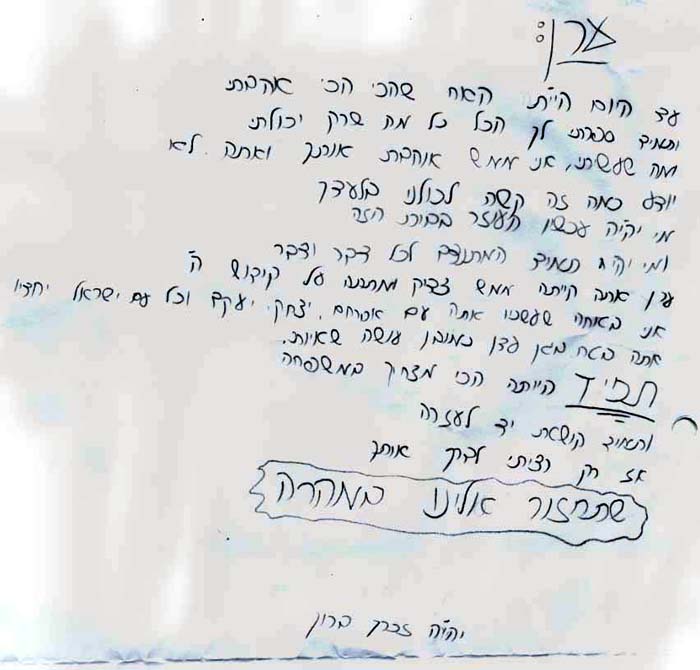 ערן:
עד היום היית האח שהכי הכי אהבתי
ותמיד ספרתי לך הכל כל מה שרק יכולתי
ומה שעשיתי, אני ממש אוהבת אותך ואתה לא
יודע כמה זה קשה לכולנו בלעדך
מי יהיה עכשיו העוזר בבית הזה
ומי יהיה תמיד המתנדב לכל דבר ודבר
ערן אתה היית ממש צדיק על קידוש ה'
אני בטוחה שעכשיו אתה עם אברהם, יצחק, יעקב וכל עם ישראל יחדיו
אתה בטח בגן עדן כמובן עושה שאיות.
תמיד הייתה הכי מצחיק במשפחה
ותמיד הושאת יד לעזרה
אז רק רציתי לברך אותך
שתחזור אלינו במהרה
יהיה זכרך ברוך